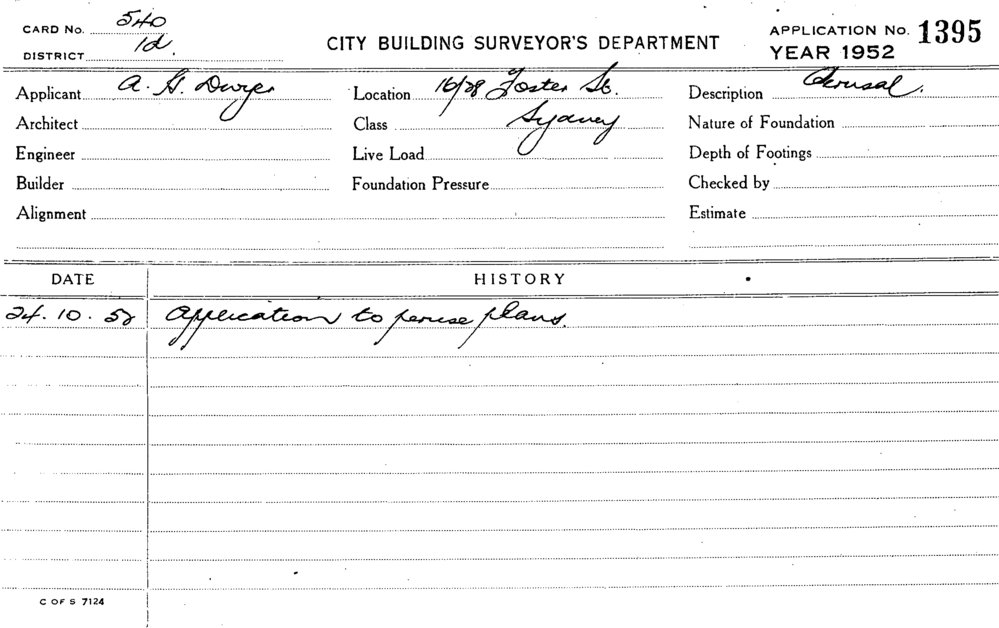 CARD No. 540
DISTRICT 1d.
CITY BUILDING SURVEYOR'S DEPARTMENT
APPLICATION No. 1395
YEAR 1952
Applicant A. G. Dwyer
Location 16/28 Foster St.
Description Perusal.
Architect
Class Sydney
Nature of Foundation
Engineer
Live Load
Depth of Footings
Builder
Foundation Pressure
Checked by
Alignment
Estimate
DATE HISTORY
24. 10. 52 Application to peruse plans.
C OF S 7124